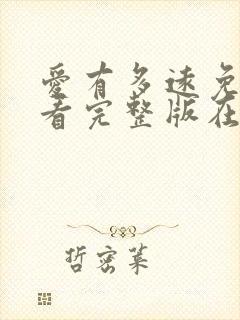 愛有多遠免
看完整版在
哲密菜